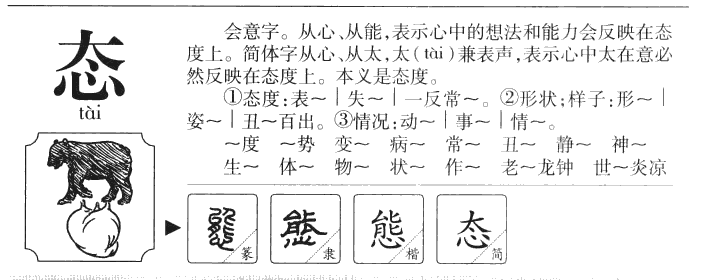 态
tài
会意字。从心、从能，表示心中的想法和能力会反映在态
度上。简体字从心、从太，太(tài)兼表声，表示心中太在意必
然反映在态度上。本义是态度。
①态度：表～｜失～｜一反常～。②形状；样子：形～｜
姿～｜丑～百出。③情况：动～｜事～｜情～。
～度 ～势 变～ 病～ 常～ 丑～ 静～ 神～
生～ 体～ 物～ 状～ 作～ 老～龙钟 世～炎凉
態 篆
態 隶
態 楷
态 简